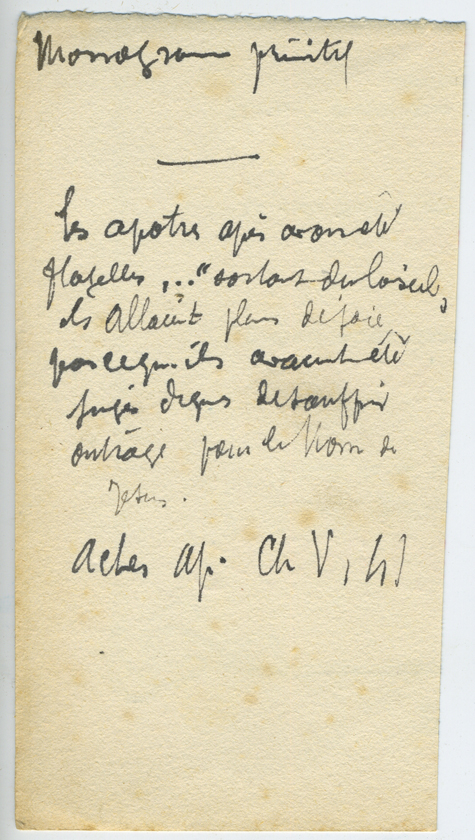 Monogramme primitif
Les apotres après avoir été
flagellés ,..." sortant du Conseil,
ils allaient pleins de joie
parcequ'ils avaient été
jugés dignes de souffrir
outrage pour le Nom de
Jésus.
Actes Ap. Ch V, 41